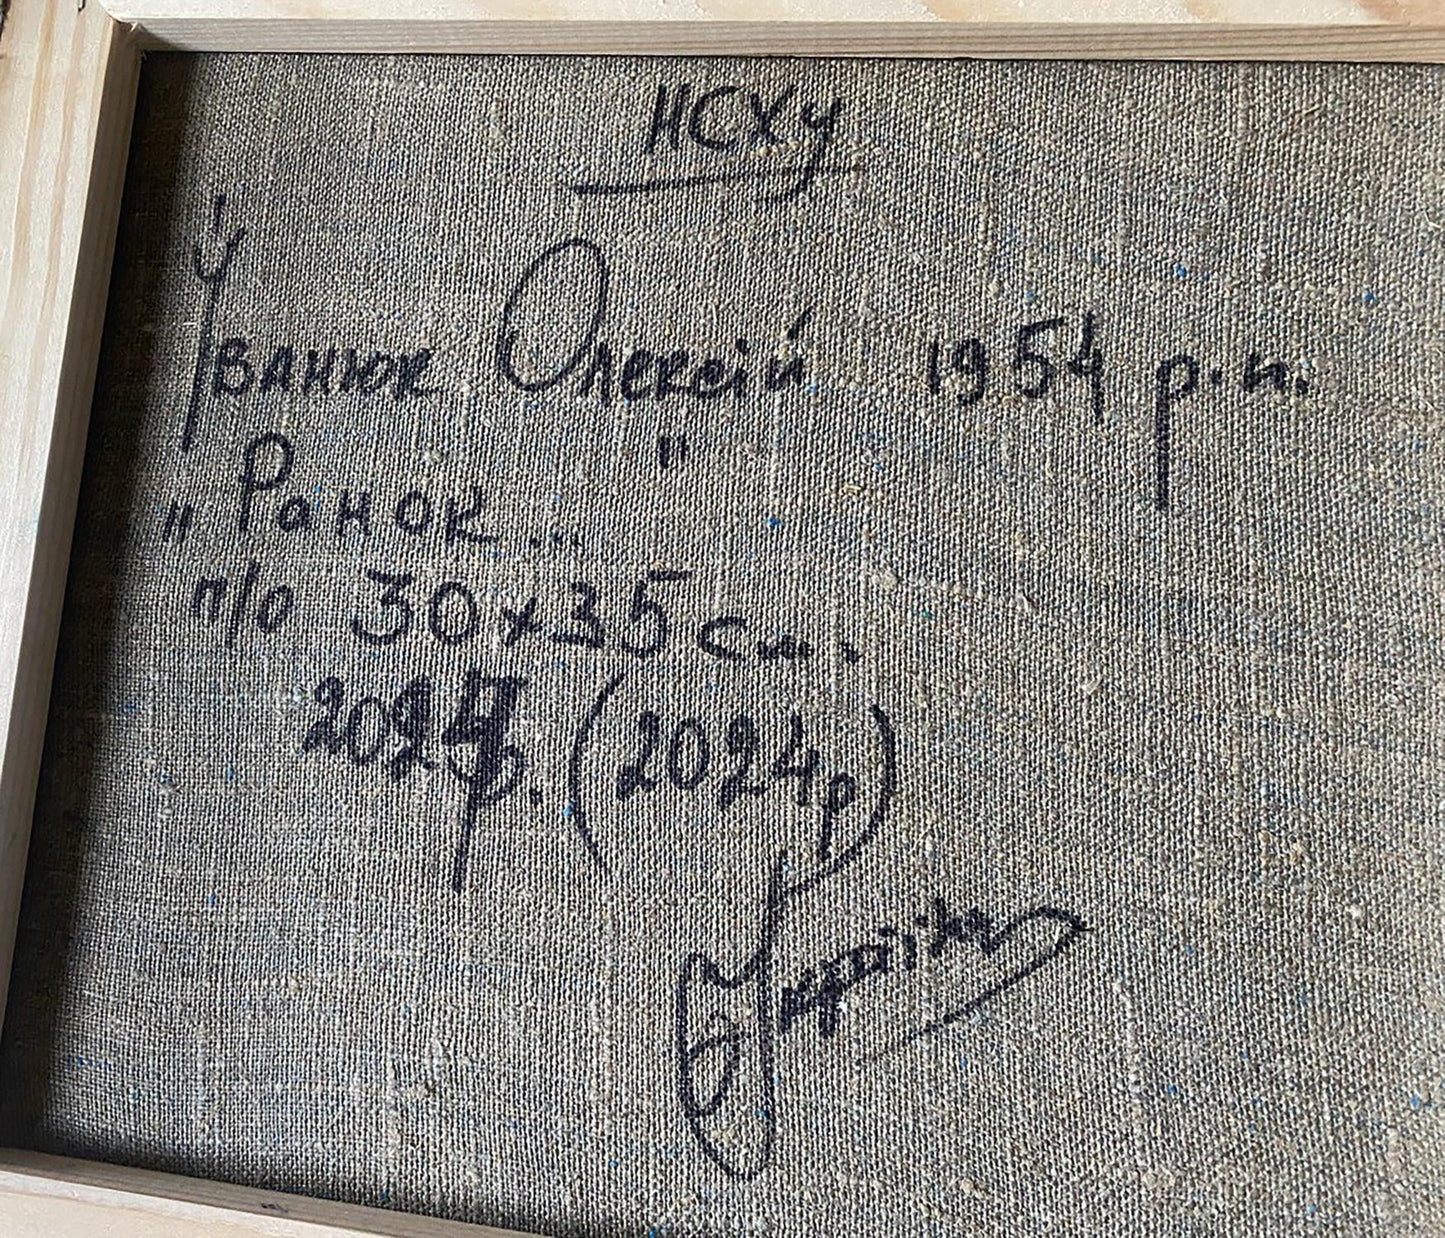 НСХУ
Іванюк Олексій 1954 р.н.
"Ранок..."
п/о 30х35 см.
2024р. (2024р)